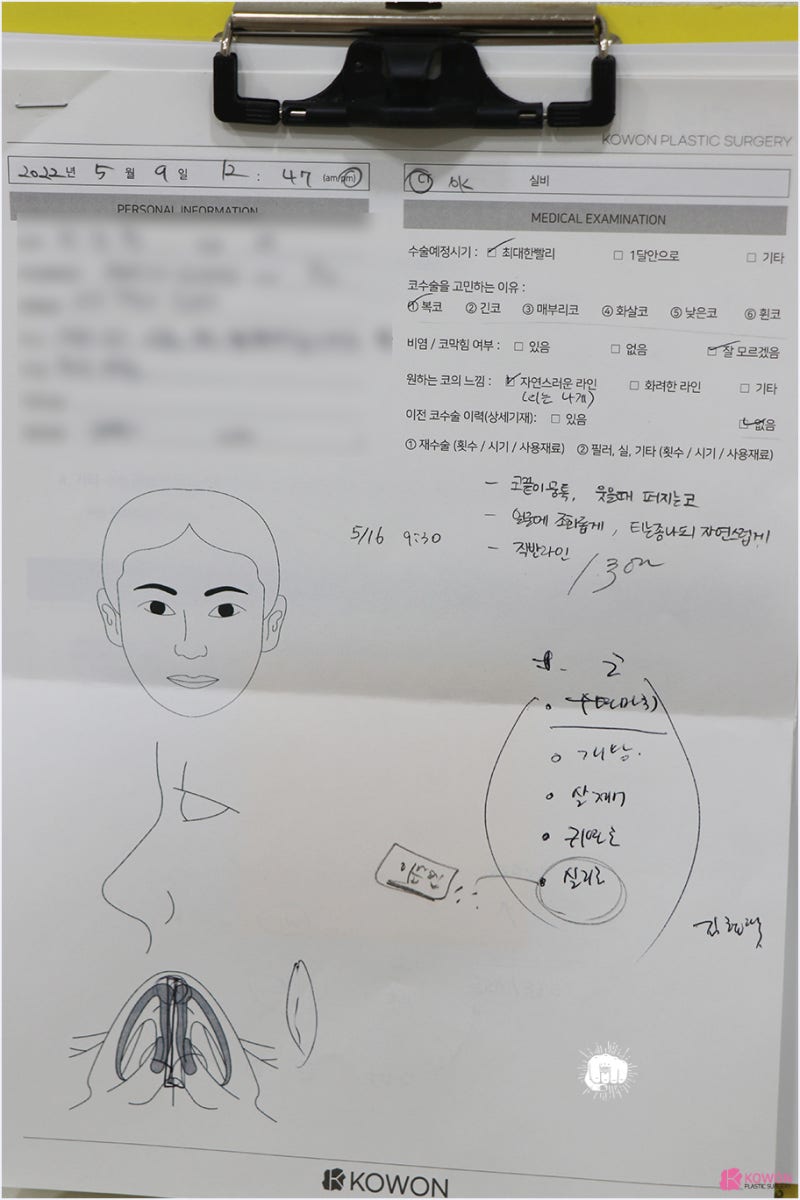 KOWON PLASTIC SURGERY
2022년 5월 9일 12 : 47 (am/pm)
CT OK 실비
PERSONAL INFORMATION
MEDICAL EXAMINATION
수술예정시기 : ☑ 최대한빨리 □ 1달안으로 □ 기타
코수술을 고민하는 이유 :
① 복코 ② 긴코 ③ 매부리코 ④ 화살코 ⑤ 낮은코 ⑥ 휜코
비염 / 코막힘 여부 : □ 있음 □ 없음 ☑ 잘 모르겠음
원하는 코의 느낌 : ☑ 자연스러운 라인 □ 화려한 라인 □ 기타
(티는 나게)
이전 코수술 이력(상세기재): □ 있음 ☑ 없음
① 재수술 (횟수 / 시기 / 사용재료) ② 필러, 실, 기타 (횟수 / 시기 / 사용재료)
- 코끝이 뭉툭, 웃을때 퍼지는코
- 얼굴에 조화롭게, 티는좀나되 자연스럽게
- 직반라인
5/16 9:30
개방
귀연골
실리콘
KOWON
KOWON
PLASTIC SURGERY